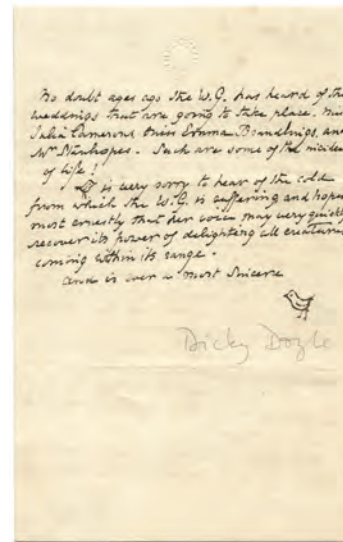 No doubt ages ago the W.G. has heard of the
weddings that are going to take place. Miss
Julia Camerons Miss Emma Brandlings, and
Mr Stanhopes. Such are some of the incidents
of life!
is very sorry to hear of the cold
from which the W.G. is suffering and hopes
most ernestly that her voice may very quickly
recover its power of delighting all creatures
coming within its range.
And is ever a most sincere
Dicky Doyle